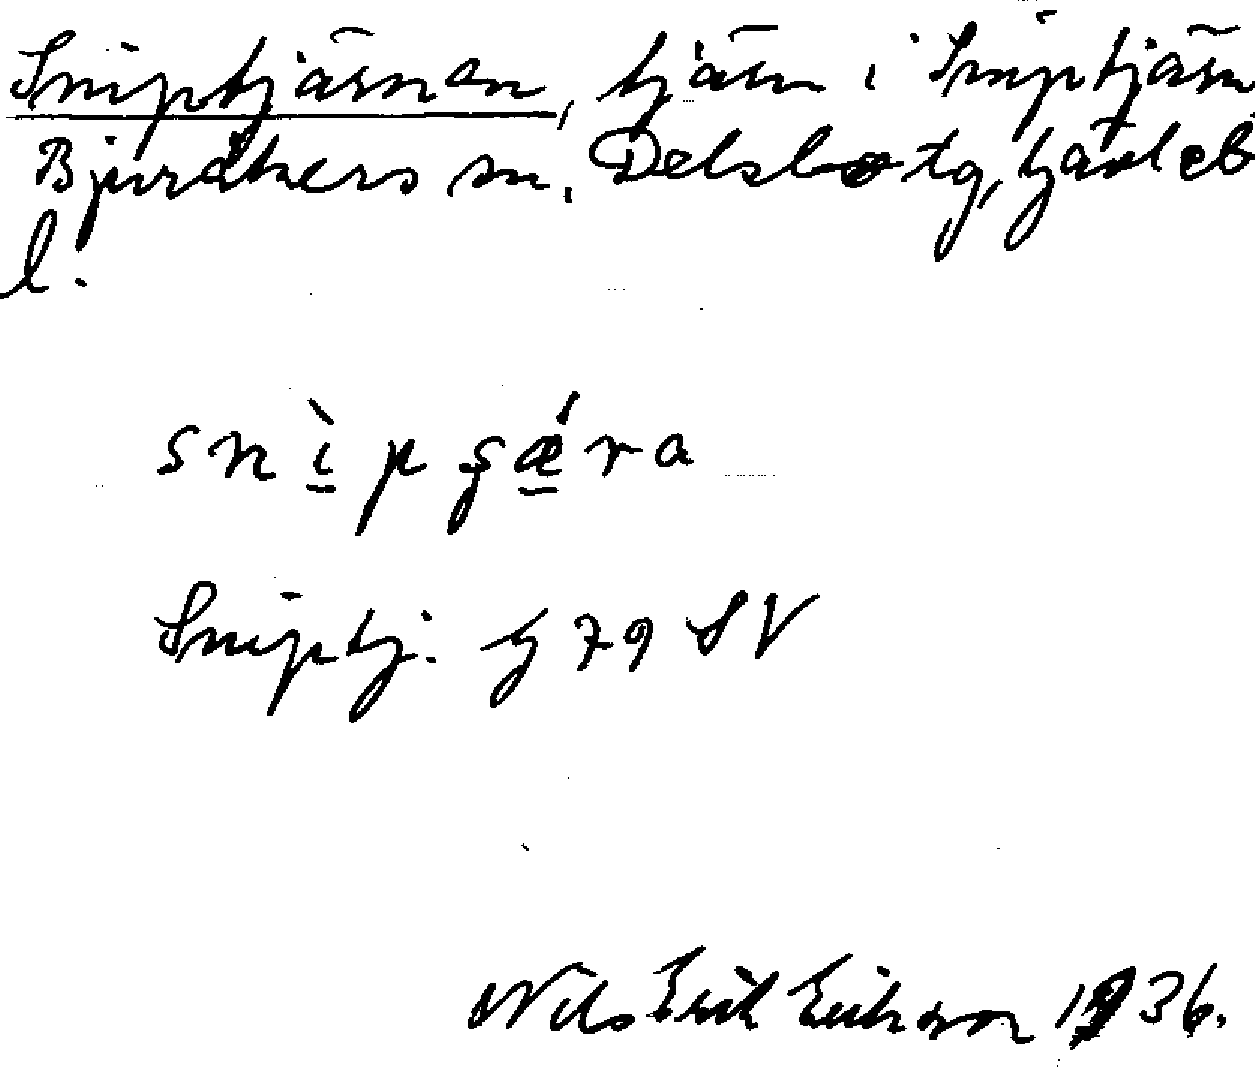 Sniptjärnen, tjärn i Sniptjärn
Bjuråkers sn, Delsbo tg, Gävleb
l.
snìpşǽra
Sniptj. G 79 SV
Nils Erik Erikson 1936.